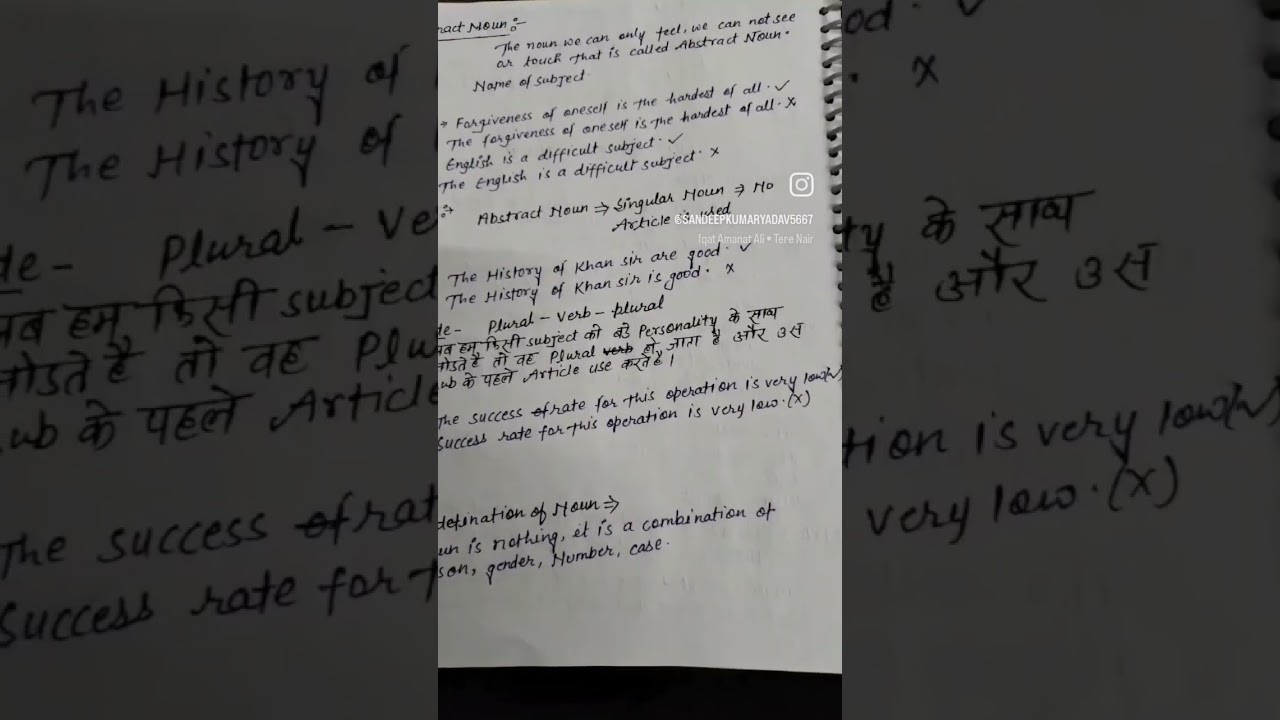 ract Noun :-
The noun we can only feel, we can not see
or touch that is called Abstract Noun.
Name of subject.
→ Forgiveness of oneself is the hardest of all. ✓
The forgiveness of oneself is the hardest of all. x
English is a difficult subject. ✓
The English is a difficult subject. x
Abstract Noun ⇒ Singular Noun ⇒ No
Article is used
@SANDEEPKUMARYADAV5667
Iqat Amanat Ali • Tere Nair
The History of Khan sir are good. ✓
The History of Khan sir is good. x
de- Plural - Verb - plural
जब हम किसी subject को बडे Personality के साथ
जोडते है तो वह Plural verb हो जाता है और उस
ub के पहले Article use करते है।
The success of rate for this operation is very low(✓)
Success rate for this operation is very low. (x)
defination of Noun ⇒
un is nothing, it is a combination of
son, gender, Number, case.